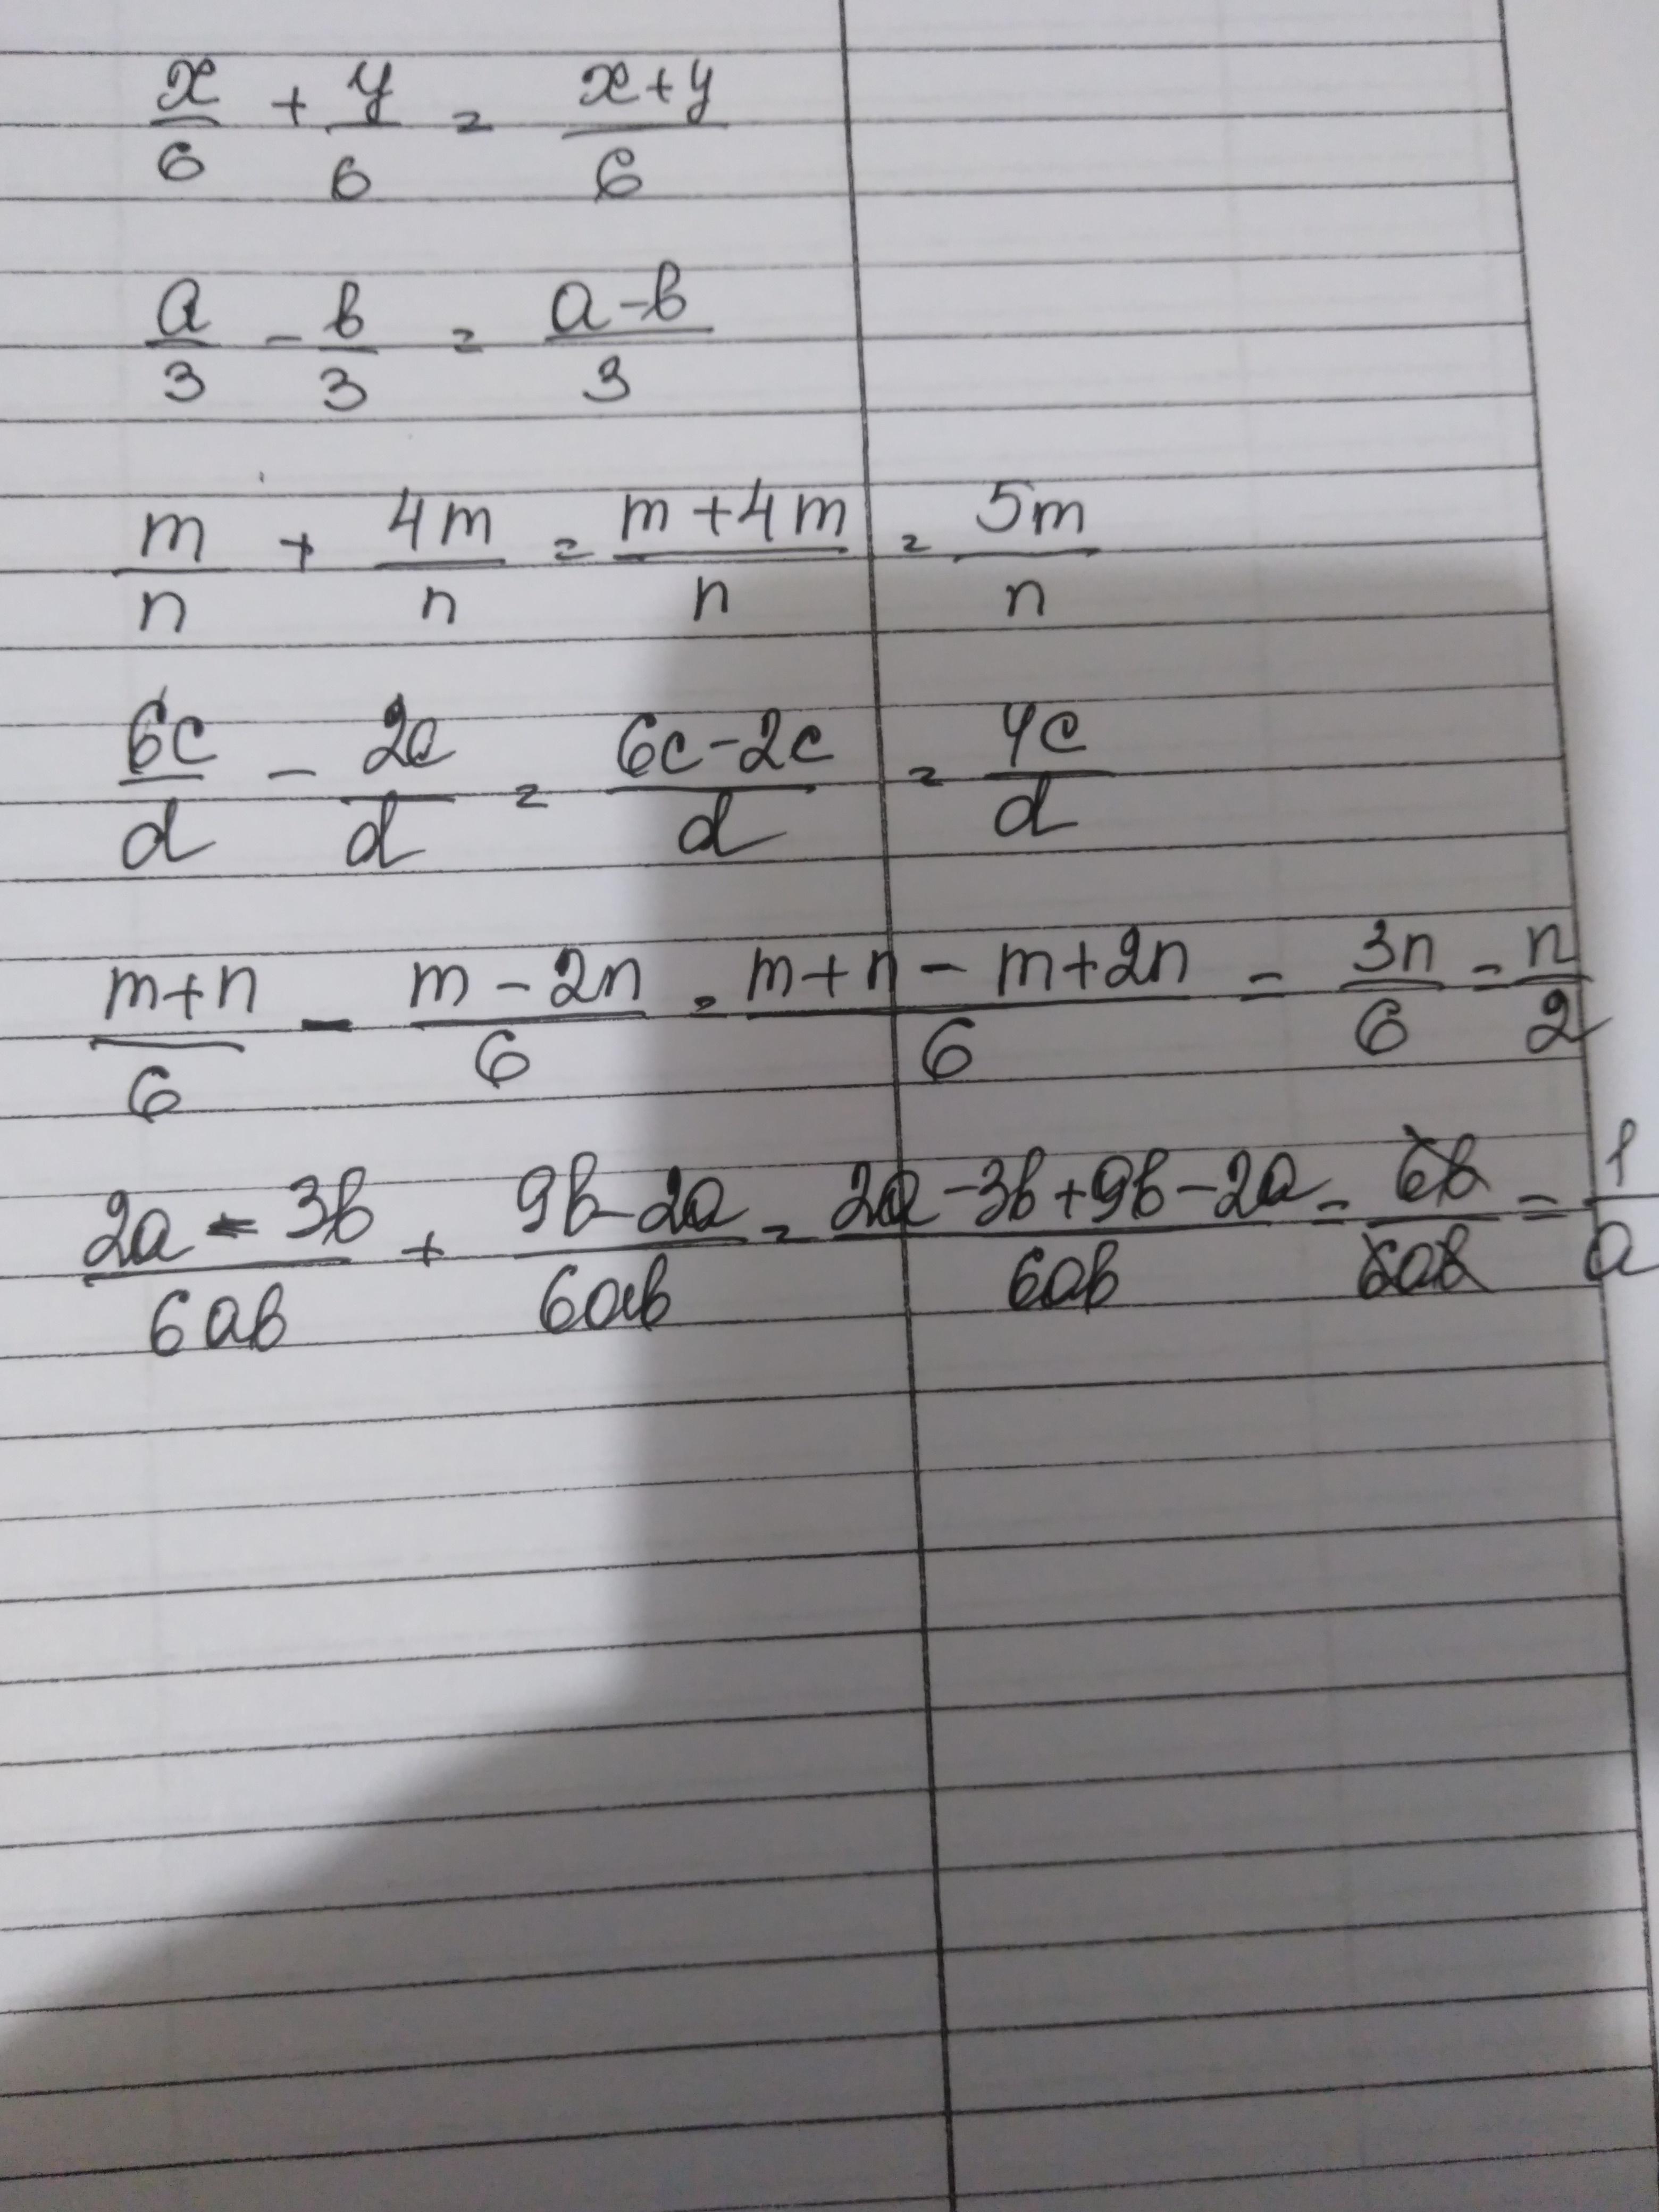 x/6 + y/6 = x+y/6
a/3 - b/3 = a-b/3
m/n + 4m/n = m+4m/n = 5m/n
6c/d - 2c/d = 6c-2c/d = 4c/d
m+n/6 - m-2n/6 = m+n-m+2n/6 = 3n/6 = n/2
2a-3b/6ab + 9b-2a/6ab = 2a-3b+9b-2a/6ab = 6b/6ab = 1/a